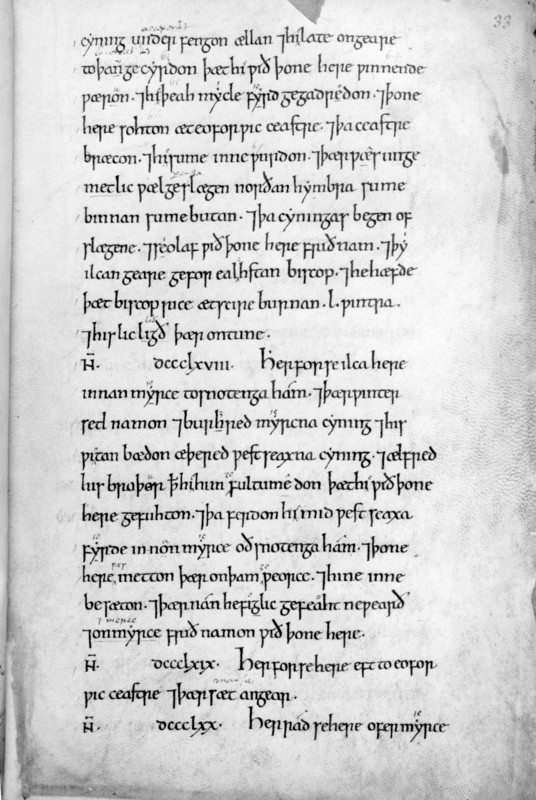 33
cyning underfengon ællan ⁊hi late ongeare
toþam gecyrdon þæt hi ƿið þone here ƿinnende
ƿæron. ⁊hi þeah mycle fyrd gegadredon. ⁊þone
here sohton æt eoforƿic ceastre. ⁊þa ceastre
bræcon. ⁊hi sume inne ƿurdon. ⁊þær ƿæs unge
metlic ƿæl geslægen norðan hymbra sume
binnan sume butan. ⁊þa cyningas begen of
slægene. ⁊seo laf ƿið þone here frið nam. ⁊þy
ilcan geare gefor ealhstan biscop. ⁊he hæfde
þæt biscoprice æt scire burnan. l. ƿintra.
⁊his lic ligð þær on tune.
Ñ. dccclxviii. Her for se ilca here
innan myrce to snotenga hám. ⁊þær ƿinter
setl namon ⁊burhred myrcna cyning ⁊his
ƿitan bædon æþered ƿest seaxna cyning. ⁊ælfred
his broþor þæt hi him fultumedon þæt hi ƿið þone
here gefuhton. ⁊þa ferdon hi mid ƿest seaxa
fyrde innon myrce oð snotenga hám. ⁊þone
here metton þær on þam ƿeorce. ⁊hine inne
besæton. ⁊þær nán hefiglic gefeoht ne ƿearð
⁊on myrce frið namon ƿið þone here.
Ñ. dccclxix. Her for se here eft to eofor
ƿic ceastre ⁊þær sæt an gear.
Ñ. dccclxx. Her rád se here ofer myrce